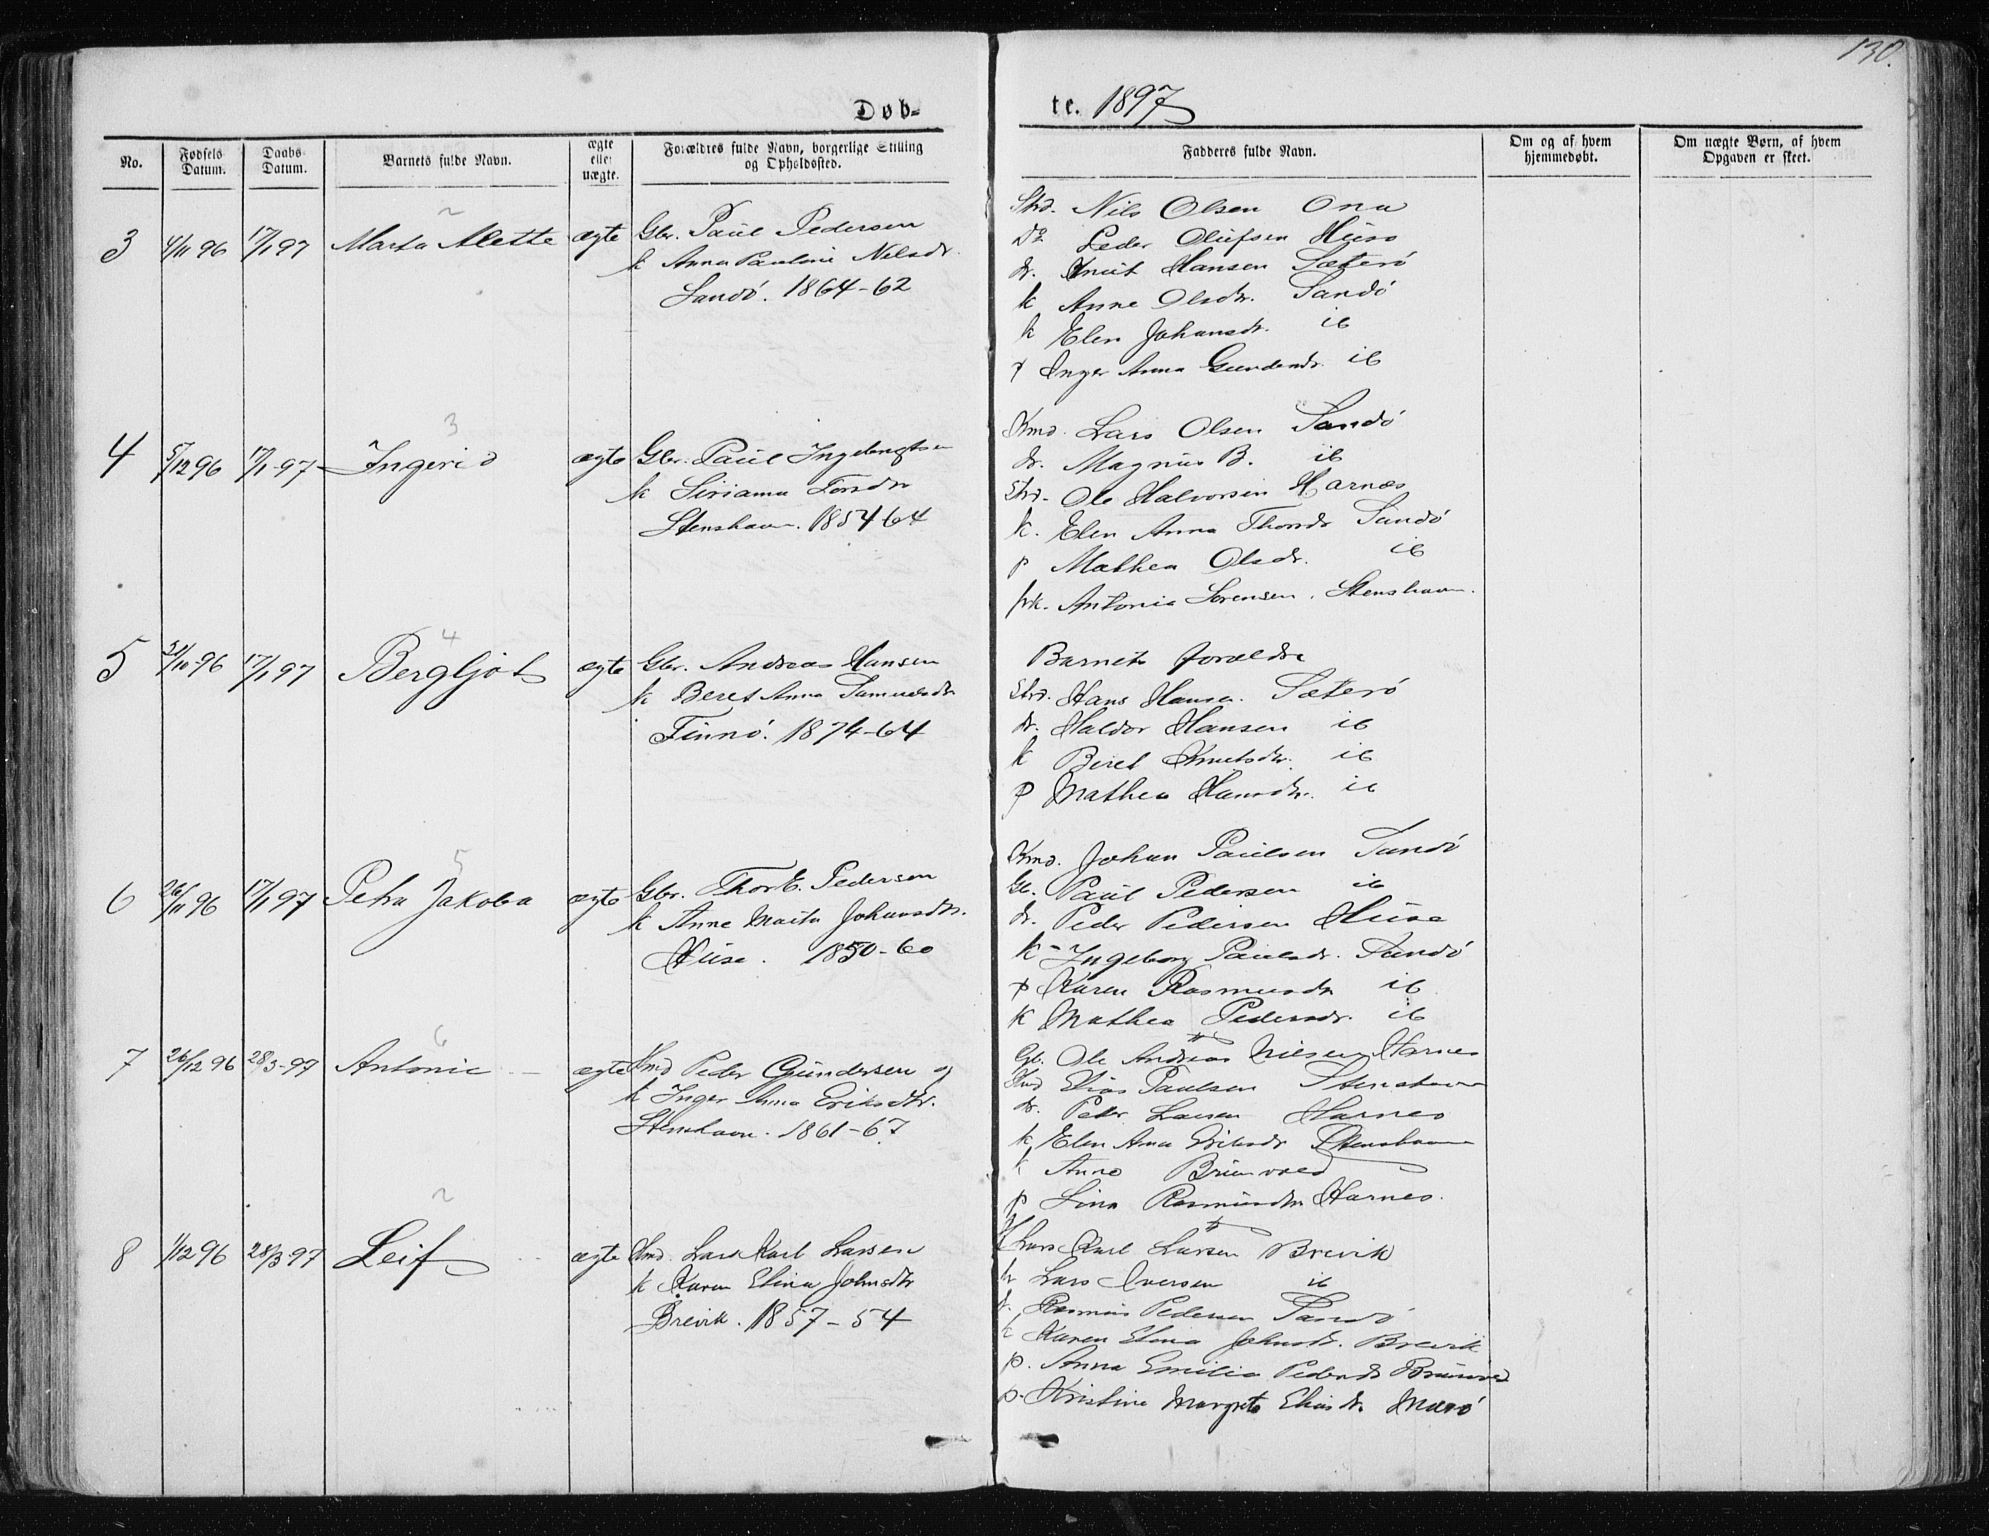 130.
Døb-
te. 1897
No.
Fødsels Datum.
Daabs Datum.
Barnets fulde Navn.
ægte eller uægte.
Forældres fulde Navn, borgerlige Stilling og Opholdssted.
Fadderes fulde Navn.
Om og af hvem hjemmedøbt.
Om uægte Børn, af hvem Opgaven er skeet.
2
3 4/11 96 17/1 97 Marta Alette ægte Gbr. Paul Pedersen
k Anna Pauline Nilsdr.
Sandö. 1864-62
Strd. Nils Olsen Ona
Do Peder Olufsen Huso
dr. Knut Hansen Sæterö
k Anne Olsdtr. Sandö
k Elen Johansdr. ib
p Inger Anna Gundersdr. ib
3
4 5/12 96 17/1-97 Ingerid ægte Gbr. Paul Ingebrigtsen
k Siriama Torsdr
Stenshavn. 1854 64
Kmd. Lars Olsen Sandö
dr. Magnus B. ib
Strd. Ole Halvorsen Harnæs
k. Elen Anna Thorsdr Sandö
p Mathea Olsdr. ib
frk. Antonia Sorensen. Stenshavn.
4
5 31/10-96 17/1 97 Bergljot ægte Gbr. Andreas Hansen
k Beret Anna Samuelsdr
Finnö. 1874-64
Barnets forældre
Strd. Hans Hansen. Sæterö
dr. Haldor Hansen ib
k Beret Knutsdtr. ib
p Mathea Hansdtr. ib
5
6 26/11 96 17/1 97 Petra Jakoba ægte Gbr. Thore. Pedersen
k Anne Marta Johansdtr.
Huse. 1850-60
Kmd. Johan Paulsen Sandö
Gb. Paul Pedersen ib
dr. Peder Pedersen Huse
k Ingeborg Paulsdr. Sandö
p Karen Rasmusdr ib
k Mathea Pedersdr. ib
6
7 26/12 96 28/3-97 Antonie ægte Kmd Peder Gundersen og
k Inger Anna Eriksdtr.
Stenshavn. 1861-67
Gb. Ole Andreas Nilsen Harnes
Kmd Elias Paulsen Stenshavn
dr. Peter Larsen Harnes
k Elen Anna Eriksdr Stenshavn
k Anne
p Lina Rasmusdtr Harnes.
2
8 1/12 96 28/3 97 Leif ægte Kmd. Lars Karl Larsen
k Karen Elina Johnsdtr
Brevik. 1857-54
Lars Karl Larsen Brevik
Lars Iversen ib
dr. Rasmus Pedersen Sandö
k Karen Elina Johnsdr. Brevik
p. Anna Emilia Pedersdr
p. Kristine Margrete Eliasdr.